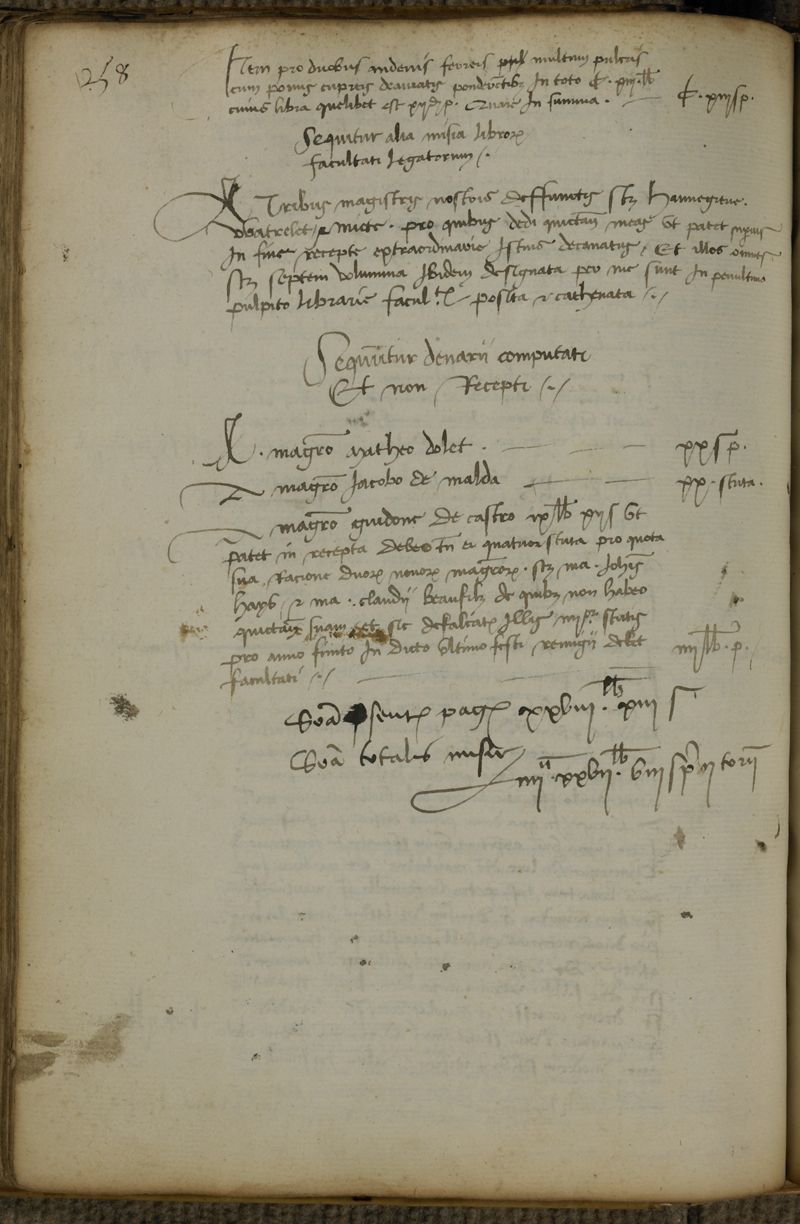 258
Item pro duobus anderiis ferreis multum pulcris
cum pomis cupreis deauratis ponderantibus In toto C. xiii lb
cuius libra quelibet est xii d. p. Quare In summa . C. xiii s p.
Sequitur alia misia librorum
facultati legatorum /.
A Tribus magistris nostris deffunctis scz hannegrene.
vvatrelet et micte . pro quibus dedi quictan meas Vt patet superius
In fine recepte extraordinarie Istius decanatus / Et illos omnes
scz septem volumina Ibidem designata per me sunt In penultimo
pulpito librarie facul.tis posita et cathenata /./
Sequntur denarii computati
Et non Recepti /./
A . magro matheo dolet . xx s p.
A magro Jacobo de malda xx . scuta .
A magro guidone De castro ix lb xii s Vt
patet in recepta debeo tn ei quatuor scuta pro quota
sua Racione duorum nouorum magrorum . scz ma . Johis
haps et ma . claudii beaufilz de quibus non habeo
quictan suam et sic defalcatis Illis iiii.or scutis
pro anno finito In dicto Vltimo festi remigii debet iiii lb . p .
facultati /./
Soa psentis pagie xxviii . lb xiii s
Soa totalis misie
iiii c xxvii . lb viii s p ii tor